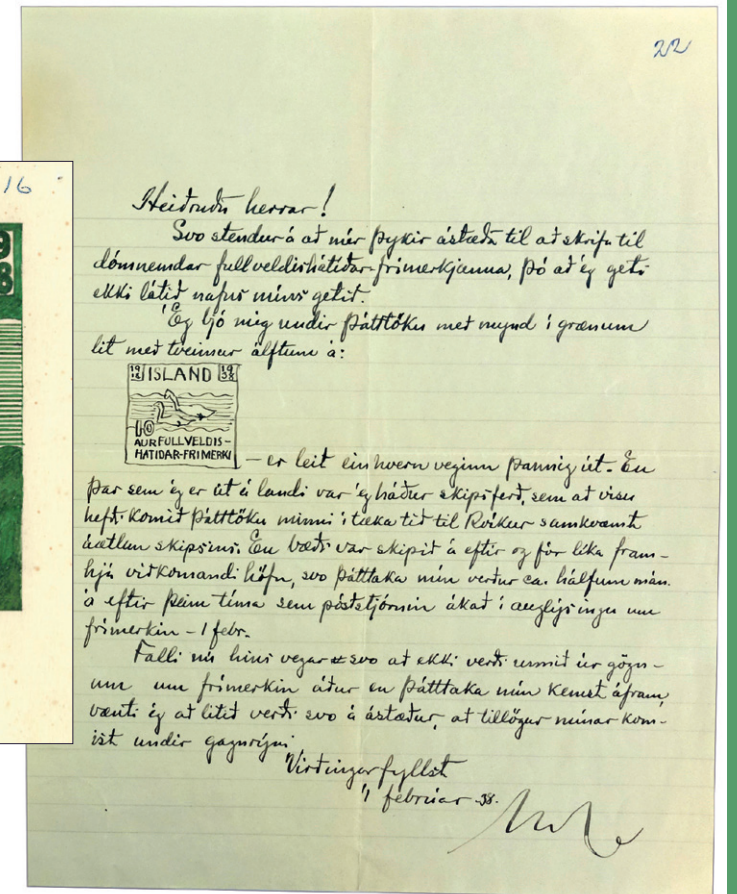 22
16
9
8
Heiðruðu herrar!
Svo stendur á að mér þykir ástæða til að skrifa til
dómnemdar fullveldishátíðar-frímerkjanna, þó að ég geti
ekki látið nafns míns getið.
Ég bjó mig undir þátttöku með mynd í grænum
lit með tveimur álftum á:
19 18 ISLAND 19 38
10
AUR FULLVELDIS-
HATIDAR-FRIMERKI
– er leit einhvern veginn þannig út. En
þar sem ég er út á landi var ég háður skipsferð, sem að vísu
hefði komið þátttöku minni í tæka tíð til Rvíkur samkvæmt
áætlun skipsins. En bæði var skipið á eftir og fór líka fram-
hjá viðkomandi höfn, svo þátttaka mín verður ca. hálfum mán.
á eftir þeim tíma sem póststjórnin ákað í auglýsingu um
frímerkin – 1 febr.
Falli nú hins vegar svo að ekki verði unnið úr gögn-
um um frímerkin áður en þátttaka mín kemst áfram,
vænti ég að litið verði svo á ástæður, at tillögur mínar kom-
ist undir gagnrýni
Virðingarfyllst
1 febrúar 38.